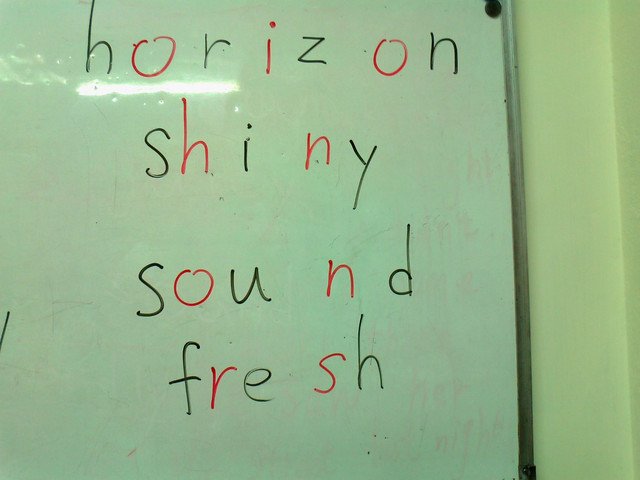 horizon
shiny
sound
fresh